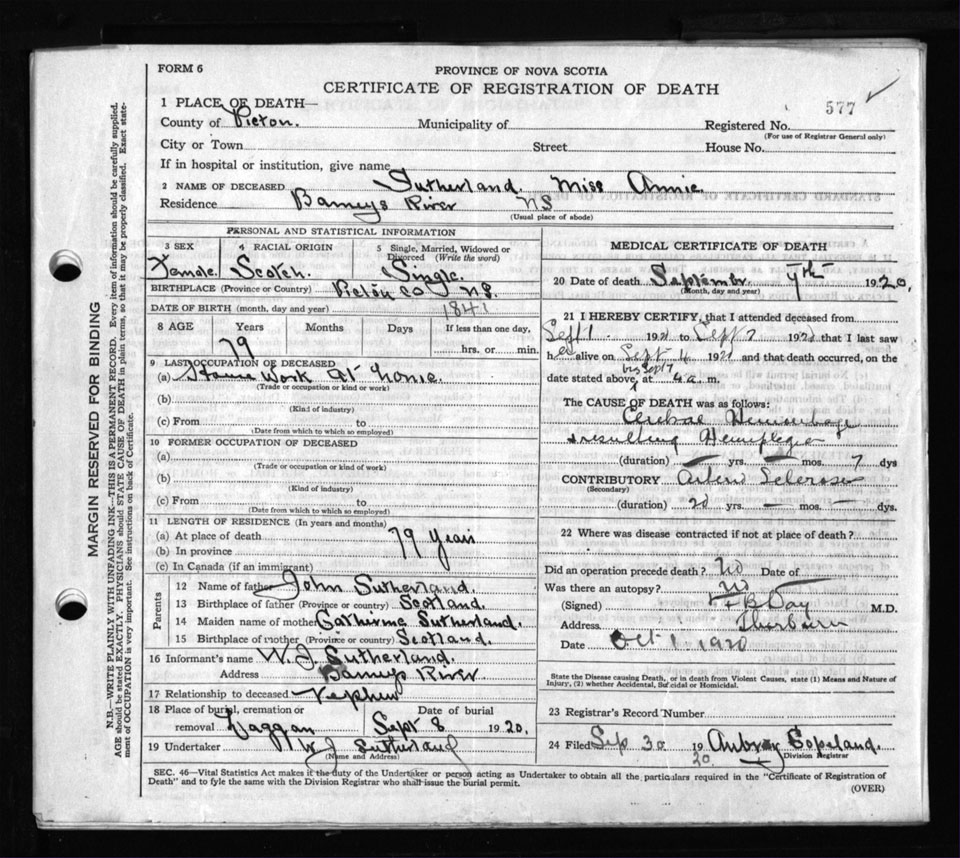 FORM 6
PROVINCE OF NOVA SCOTIA
CERTIFICATE OF REGISTRATION OF DEATH
1 PLACE OF DEATH—
577
County of Picton. Municipality of Registered No.
(For use of Registrar General only)
City or Town Street House No.
If in hospital or institution, give name
2 NAME OF DECEASED Sutherland. Miss Annie.
Residence Barneys River NS
(Usual place of abode)
PERSONAL AND STATISTICAL INFORMATION
3 SEX 4 RACIAL ORIGIN 5 Single, Married, Widowed or Divorced (Write the word)
Female. Scotch. Single.
BIRTHPLACE (Province or Country) Picton Co N.S.
DATE OF BIRTH (month, day and year) 1841
8 AGE Years Months Days If less than one day,
79 hrs. or min.
9 LAST OCCUPATION OF DECEASED
(a) House Work At home.
(Trade or occupation or kind of work)
(b)
(Kind of industry)
(c) From to
(Date from which to which so employed)
10 FORMER OCCUPATION OF DECEASED
(a)
(Trade or occupation or kind of work)
(b)
(Kind of industry)
(c) From to
(Date from which to which so employed)
11 LENGTH OF RESIDENCE (In years and months)
(a) At place of death 79 Years
(b) In province
(c) In Canada (if an immigrant)
Parents
12 Name of father John Sutherland.
13 Birthplace of father (Province or country) Scotland.
14 Maiden name of mother Catherine Sutherland.
15 Birthplace of mother (Province or country) Scotland.
16 Informant's name W. J. Sutherland.
Address Barneys River
17 Relationship to deceased Nephew
18 Place of burial, cremation or Date of burial
removal Laggan Sept 8 1920.
19 Undertaker W J Sutherland
(Name and Address)
MEDICAL CERTIFICATE OF DEATH
20 Date of death September 7th 1920.
(Month, day and year)
21 I HEREBY CERTIFY, that I attended deceased from
Sept 1 1920 to Sept 7 1920 that I last saw
her alive on Sept 4 1920 and that death occurred, on the
date stated above, at 4 a. m.
The CAUSE OF DEATH was as follows:
Cerebral Hemorrhage
resulting Hemiplegia
(duration) — yrs. — mos. 7 dys
CONTRIBUTORY Arterio Sclerosis
(Secondary)
(duration) 20 yrs. — mos. — dys.
22 Where was disease contracted if not at place of death?
Did an operation precede death? No Date of —
Was there an autopsy? No
(Signed) Day M.D.
Address Thorburn
Date Oct 1 1920
State the Disease causing Death, or in death from Violent Causes, state (1) Means and Nature of
Injury, (2) whether Accidental, Suicidal or Homicidal.
23 Registrar's Record Number
24 Filed Sep 30 1920 Aubrey Copeland.
Division Registrar
SEC. 46—Vital Statistics Act makes it the duty of the Undertaker or person acting as Undertaker to obtain all the particulars required in the "Certificate of Registration of
Death" and to fyle the same with the Division Registrar who shall issue the burial permit.
(OVER)
MARGIN RESERVED FOR BINDING
N.B.—WRITE PLAINLY WITH UNFADING INK—THIS IS A PERMANENT RECORD. Every item of information should be carefully supplied.
AGE should be stated EXACTLY. PHYSICIANS should STATE CAUSE OF DEATH in plain terms, so that it may be properly classified. Exact statement of OCCUPATION is very important. See instructions on back of Certificate.